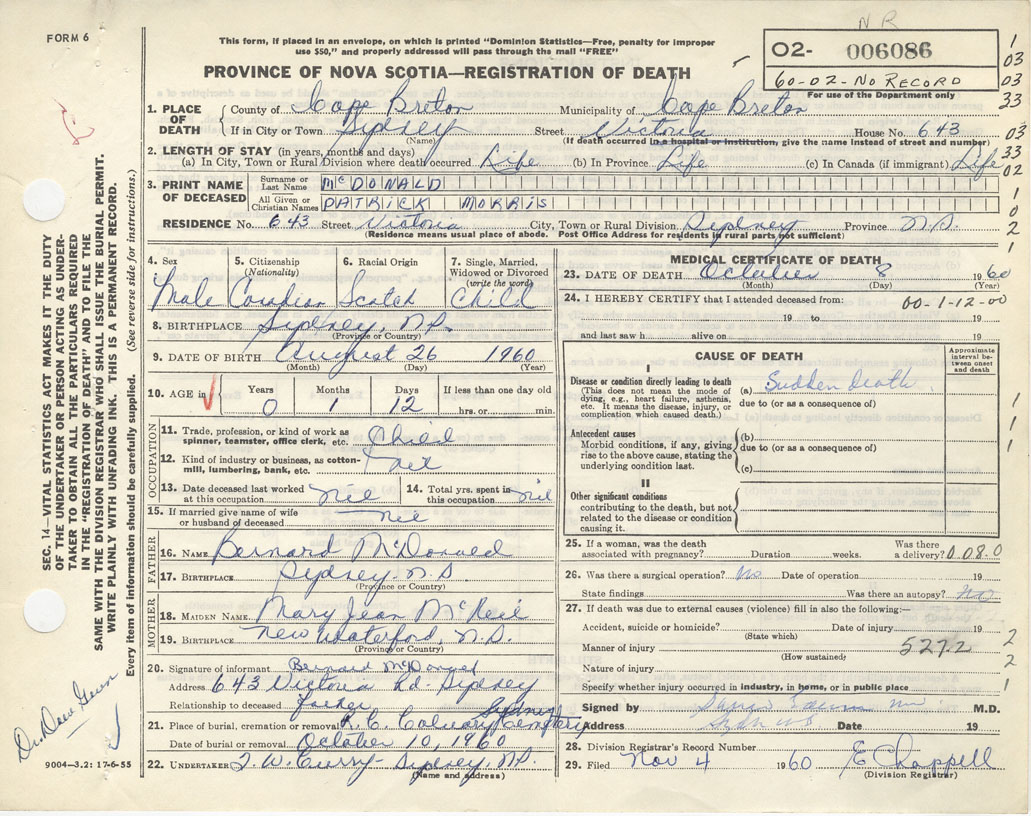 NR
FORM 6
This form, if placed in an envelope, on which is printed "Dominion Statistics—Free, penalty for improper
use $50," and properly addressed will pass through the mail "FREE"
O2- 006086
60-02-NO RECORD
For use of the Department only
PROVINCE OF NOVA SCOTIA—REGISTRATION OF DEATH
1
03
03
33
1. PLACE OF DEATH
County of Cape Breton Municipality of Cape Breton
If in City or Town Sydney Street Victoria House No. 643
(Name) (If death occurred in a hospital or institution, give the name instead of street and number)
03
33
02
2. LENGTH OF STAY (in years, months and days)
(a) In City, Town or Rural Division where death occurred Life (b) In Province Life (c) In Canada (if immigrant) Life
3. PRINT NAME OF DECEASED
Surname or Last Name McDONALD
All Given or Christian Names PATRICK MORRIS
1
0
2
1
RESIDENCE No. 643 Street Victoria City, Town or Rural Division Sydney Province N.S.
(Residence means usual place of abode. Post Office Address for residents in rural parts not sufficient)
4. Sex 5. Citizenship (Nationality) 6. Racial Origin 7. Single, Married, Widowed or Divorced (write the word)
Male Canadian Scotch Child
8. BIRTHPLACE Sydney, N.S.
(Province or Country)
9. DATE OF BIRTH August 26 1960
(Month) (Day) (Year)
10. AGE in Years Months Days If less than one day old
0 1 12 hrs. or min.
OCCUPATION
11. Trade, profession, or kind of work as spinner, teamster, office clerk, etc. Child
12. Kind of industry or business, as cotton-mill, lumbering, bank, etc.
13. Date deceased last worked at this occupation nil 14. Total yrs. spent in this occupation nil
15. If married give name of wife or husband of deceased nil
FATHER
16. NAME Bernard McDonald
17. BIRTHPLACE Sydney N.S
(Province or Country)
MOTHER
18. MAIDEN NAME Mary Jean McNeil
19. BIRTHPLACE New Waterford, N.S.
(Province or Country)
20. Signature of informant Bernard McDonald
Address 643 Victoria Rd- Sydney
Relationship to deceased Father
21. Place of burial, cremation or removal R. C. Calvary Cemetery Sydney
Date of burial or removal October 10, 1960
22. UNDERTAKER T. W. Curry- Sydney, N.S.
(Name and address)
MEDICAL CERTIFICATE OF DEATH
23. DATE OF DEATH October 8 1960
(Month) (Day) (Year)
24. I HEREBY CERTIFY that I attended deceased from: 00-1-12-00
19 to 19
and last saw h alive on 19
CAUSE OF DEATH
Approximate interval between onset and death
I
Disease or condition directly leading to death
(This does not mean the mode of dying, e.g., heart failure, asthenia, etc. It means the disease, injury, or complication which caused death.)
(a) Sudden Death
due to (or as a consequence of)
Antecedent causes
Morbid conditions, if any, giving rise to the above cause, stating the underlying condition last.
(b)
due to (or as a consequence of)
(c)
II
Other significant conditions
contributing to the death, but not related to the disease or condition causing it.
1
1
1
25. If a woman, was the death associated with pregnancy? Duration weeks. Was there a delivery? 0.08.0
26. Was there a surgical operation? No Date of operation 19
State findings Was there an autopsy? No
27. If death was due to external causes (violence) fill in also the following:—
Accident, suicide or homicide? Date of injury 19
(State which)
Manner of injury 5272
(How sustained)
Nature of injury
2
2
1
Specify whether injury occurred in industry, in home, or in public place
Signed by M.D.
Address Date 19
28. Division Registrar's Record Number
29. Filed Nov 4 1960 E Chappell
(Division Registrar)
SEC. 14—VITAL STATISTICS ACT MAKES IT THE DUTY
OF THE UNDERTAKER OR PERSON ACTING AS UNDER-
TAKER TO OBTAIN ALL THE PARTICULARS REQUIRED
IN THE "REGISTRATION OF DEATH" AND TO FILE THE
SAME WITH THE DIVISION REGISTRAR WHO SHALL ISSUE THE BURIAL PERMIT.
WRITE PLAINLY WITH UNFADING INK. THIS IS A PERMANENT RECORD.
Every item of information should be carefully supplied. (See reverse side for instructions.)
9004—3.2: 17-6-55